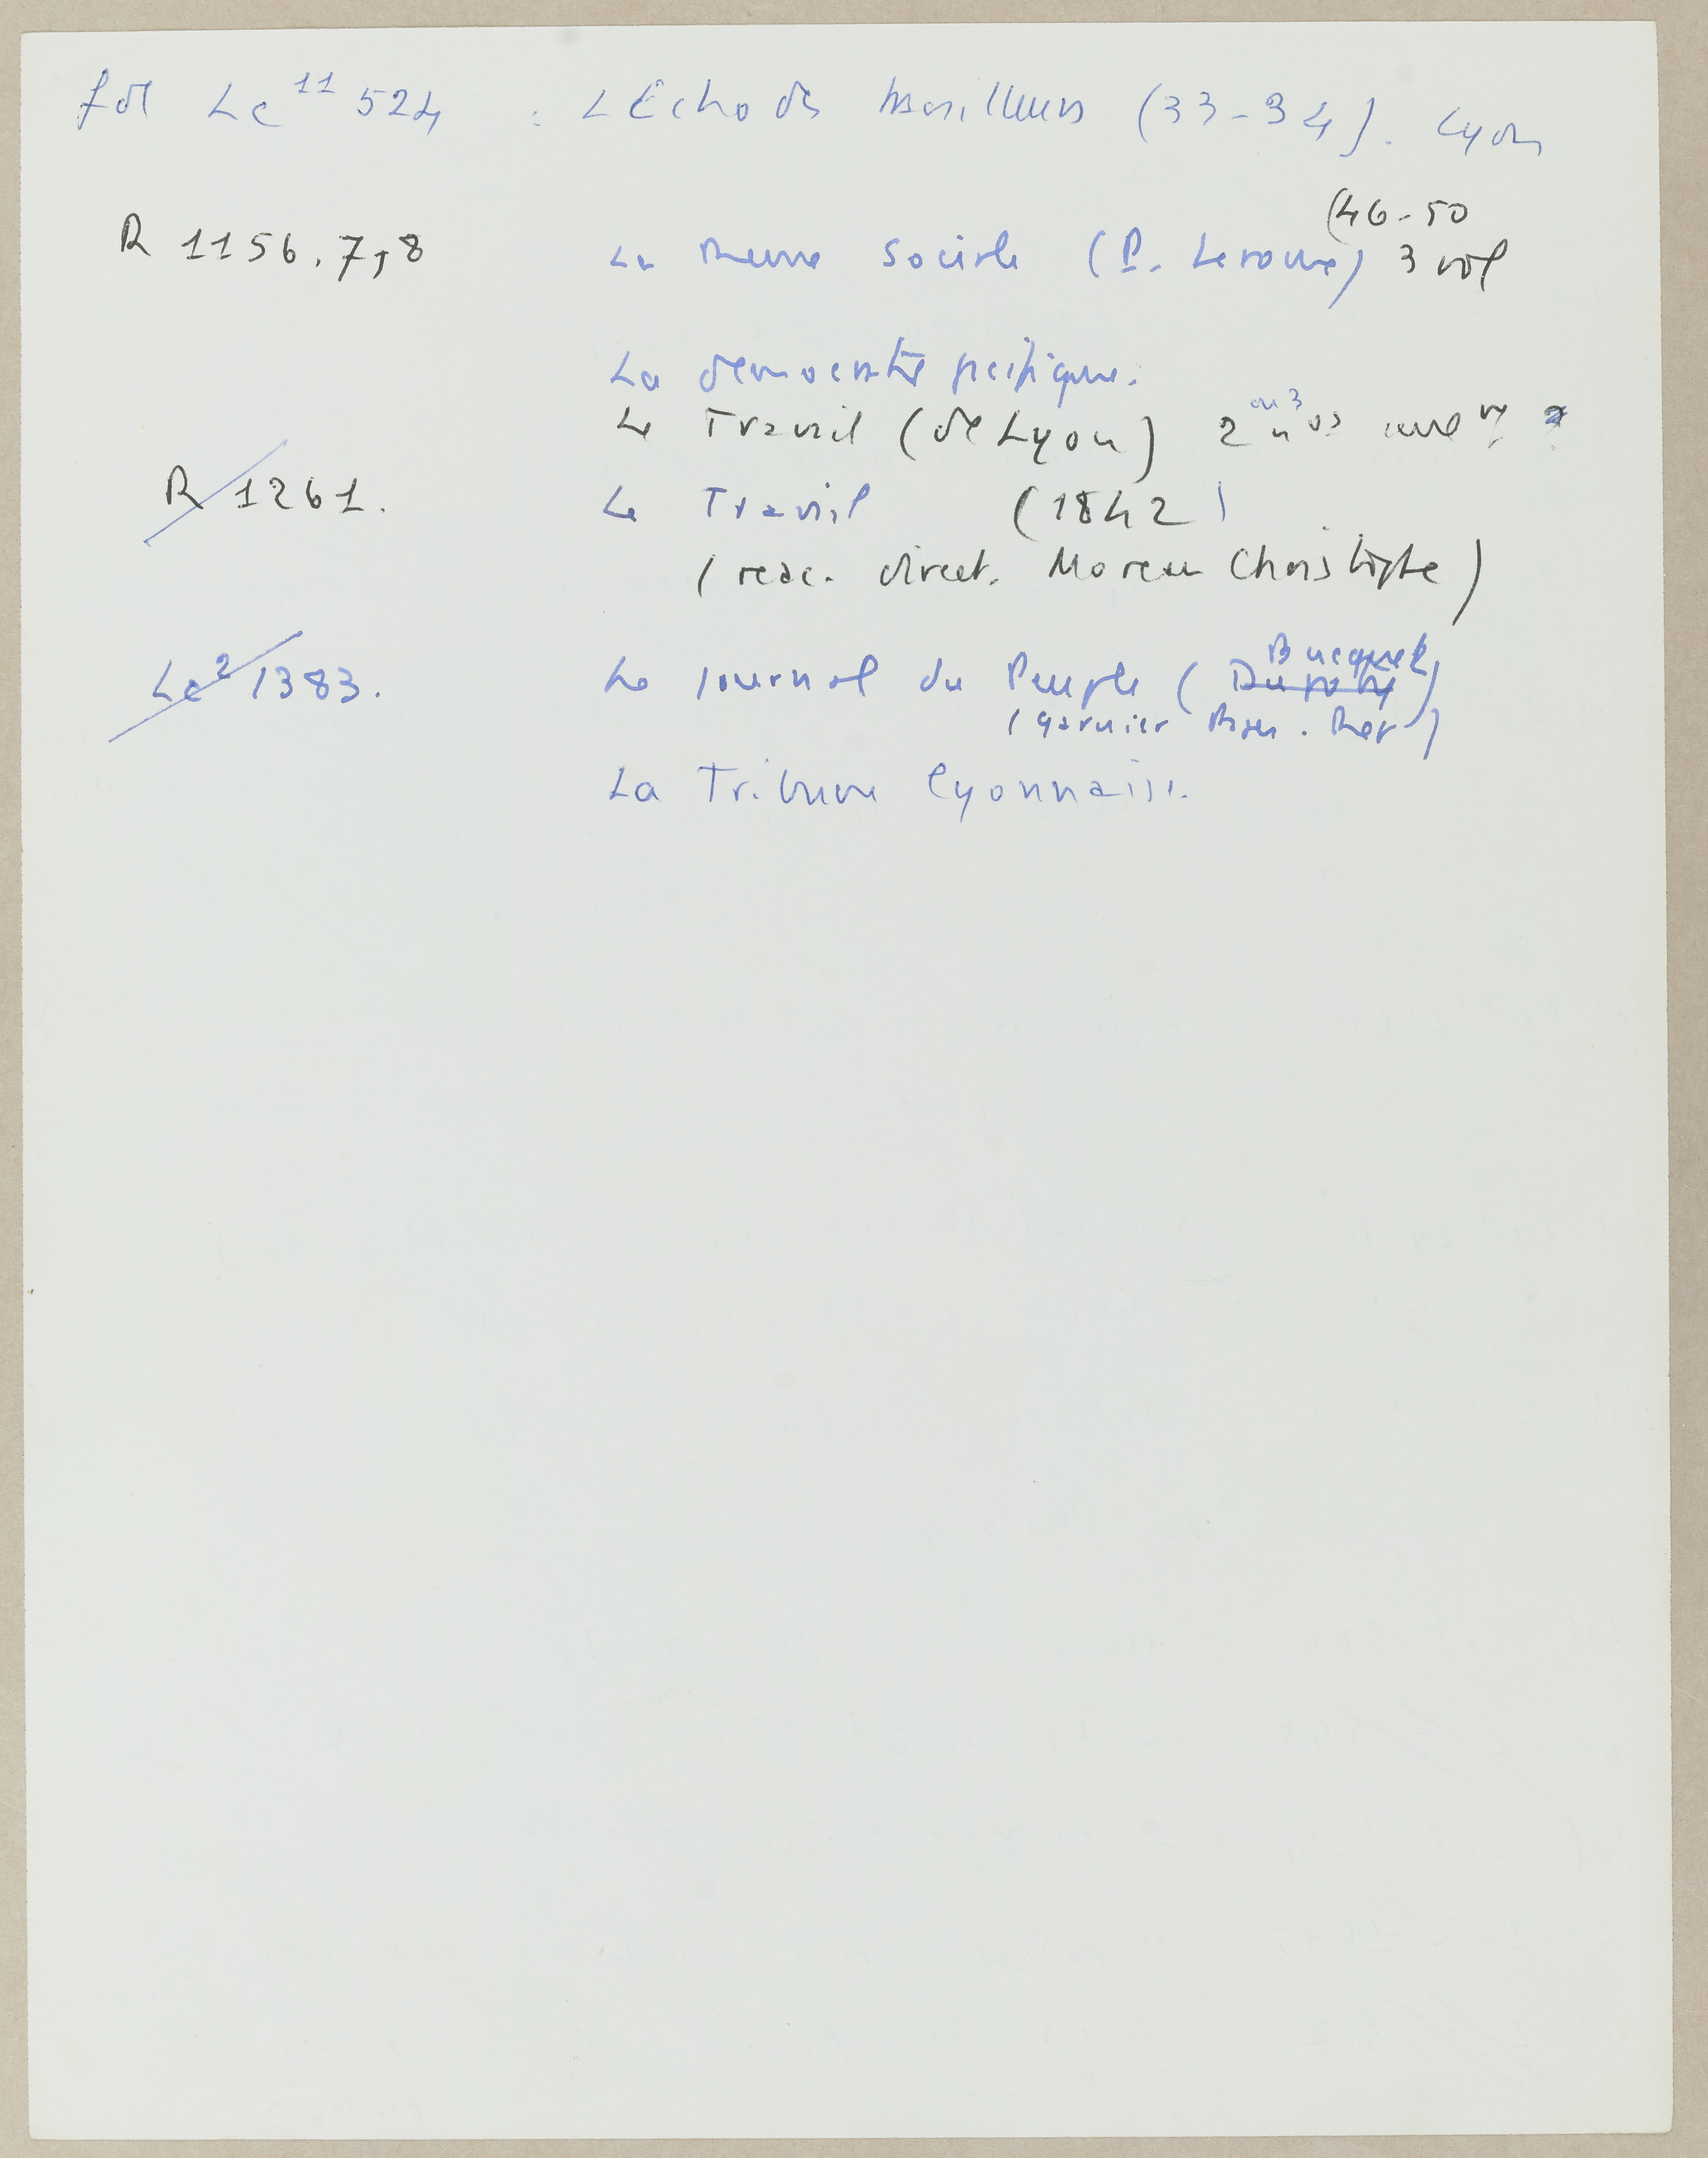 fol Lc 11 524 : L'Echo des travailleurs (33-34). Lyon
(46-50
R 1156.7,8 La Revue Sociale (P. Leroux) 3 vol
La démocratie pacifique.
ou 3
Le Travail (de Lyon) 2 nos
R 1261. Le Travail (1842)
(redac. direct. Moreau Christophe)
Bucquet
Lc 2 1383. Le Journal du Peuple (Dupoty)
(Garnier
La Tribune lyonnaise.